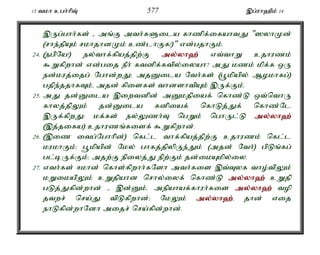 13 வமா உபர்ரீஉ 577 இப்ராஹீம் 14
இருப்பார்கள் , அங்கு அவர்களுடைய காணிக்கையாவது "ஸலாமுன்
(சாந்தியும் சமாதானமும் உண்டாகுக)" என்பதாகும்.
24. (நபியே) நல்வாக்கியத்திற்கு அல்லாஹ் எவ்வாறு உதாரணம்
கூறுகிறான் என்பதை நீர் கவனிக்கவில்லையா? அது மணம் மிக்க ஒரு
நன்மரத்தைப் போன்றது; அதனுடைய வேர்கள் (பூமியில் ஆழமாகப்)
பதிந்ததாகவும், அதன் கிளைகள் வானளாவியும் இருக்கும்.
25. அது தன்னுடைய இறைவனின் அனுமதியைக் கொண்டு ஒவ்வொரு
காலத்திலும் தன்னுடைய கனியைக் கொடுத்துக் கொண்டே
இருக்கிறது; மக்கள் நல்லுணர்வு பெறும் பொருட்டு அல்லாஹ்
(இத்தகைய) உதாரணங்களைக் கூறுகிறான்.
26. (இணை வைப்போரின்) கெட்ட வாக்கியத்திற்கு உதாரணம் கெட்ட
மரமாகும்; பூமியின் மேல் பாகத்திலிருந்தும் (அதன் வேர்) பிடுங்கப்
பட்டிருக்கும்; அதற்கு நிலைத்து நிற்கும் தன்மையுமில்லை.
27. எவர்கள் ஈமான் கொள்கிறார்களோ அவர்களை இவ்வுலக வாழ்விலும்
மறுமையிலும் உறுதியான சொல்லைக் கொண்டு அல்லாஹ் உறுதி
படுத்துகின்றான் , இன்னும், அநியாயக்காரர்களை அல்லாஹ் வழி
தவறச் செய்து விடுகிறான்; மேலும் அல்லாஹ், தான் எதை
நாடுகின்றானோ அதைச் செய்கின்றான்.